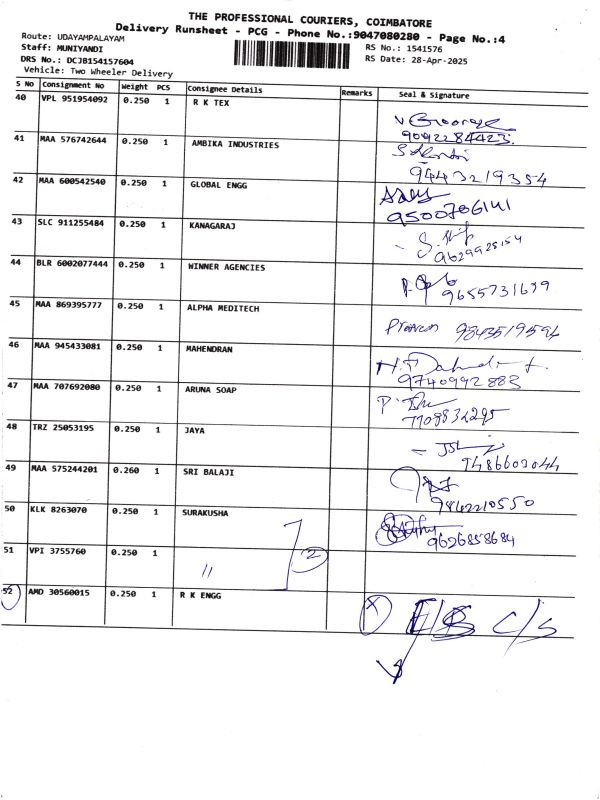 THE PROFESSIONAL COURIERS, COIMBATORE
Delivery Runsheet - PCG - Phone No.:9047080280 - Page No.:4
Route: UDAYAMPALAYAM
RS No.: 1541576
Staff: MUNIYANDI
RS Date: 28-Apr-2025
DRS No.: DCJB154157604
Vehicle: Two Wheeler Delivery
S No Consignment No Weight PCS Consignee Details Remarks Seal & Signature
40 VPL 951954092 0.250 1 R K TEX
9092284423
41 MAA 576742644 0.250 1 AMBIKA INDUSTRIES
9443219354
42 MAA 600542540 0.250 1 GLOBAL ENGG
9500706141
43 SLC 911255484 0.250 1 KANAGARAJ
9629925154
44 BLR 6002077444 0.250 1 WINNER AGENCIES
9655731639
45 MAA 869395777 0.250 1 ALPHA MEDITECH
9843519594
46 MAA 945433081 0.250 1 MAHENDRAN
9740992883
47 MAA 707692080 0.250 1 ARUNA SOAP
7708832295
48 TRZ 25053195 0.250 1 JAYA
9486603044
49 MAA 575244201 0.260 1 SRI BALAJI
9842210550
50 KLK 8263070 0.250 1 SURAKUSHA
9626858684
51 VPI 3755760 0.250 1 〃 2
52 AMD 30560015 0.250 1 R K ENGG X C/S